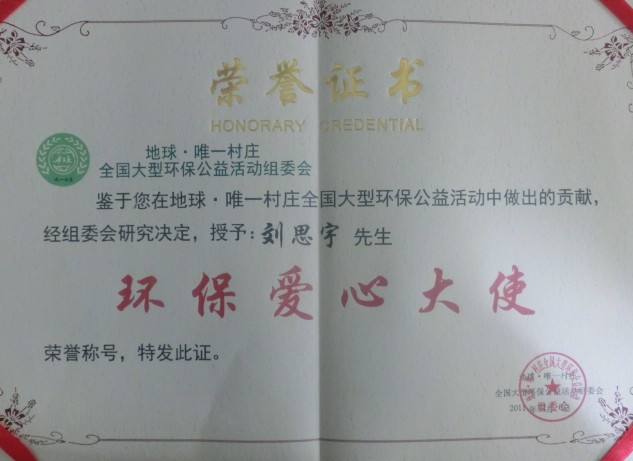 荣誉证书
HONORARY CREDENTIAL
地球·唯一村庄
全国大型环保公益活动组委会
鉴于您在地球·唯一村庄全国大型环保公益活动中做出的贡献,
经组委会研究决定,授予:刘思宇 先生
环保爱心大使
荣誉称号,特发此证。
地球·唯一村庄
全国大型环保公益活动组委会